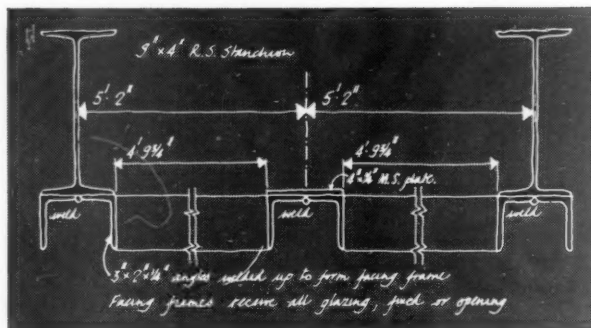 9" x 4" R.S. Stanchion
5'. 2" 5'. 2"
4'. 9¾" 4'. 9¾"
M.S. plate.
weld weld weld
3" x 2" x ¼" angles welded up to form facing frame
Facing frames receive all glazing, fixed or opening